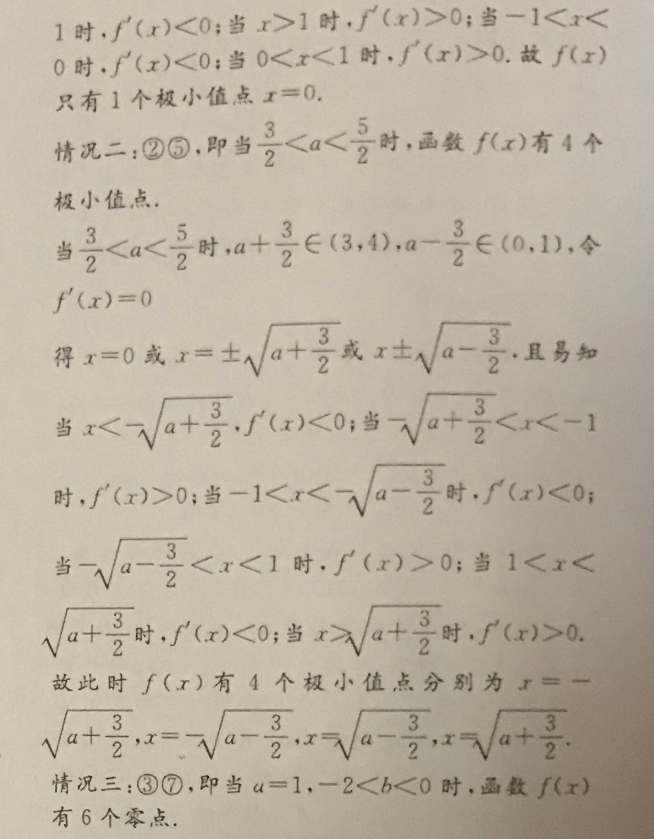 1 时,f′(x)<0;当 x>1 时,f′(x)>0;当 −1<x<
0 时,f′(x)<0;当 0<x<1 时,f′(x)>0. 故 f(x)
只有 1 个极小值点 x=0.
情况二:②⑤,即当 3/2<a<5/2 时,函数 f(x)有 4 个
极小值点.
当 3/2<a<5/2 时,a+3/2∈(3,4),a−3/2∈(0,1),令
f′(x)=0
得 x=0 或 x=±√(a+3/2) 或 x±√(a−3/2),且易知
当 x<−√(a+3/2),f′(x)<0;当 −√(a+3/2)<x<−1
时,f′(x)>0;当 −1<x<−√(a−3/2) 时,f′(x)<0;
当 −√(a−3/2)<x<1 时,f′(x)>0;当 1<x<
√(a+3/2) 时,f′(x)<0;当 x>√(a+3/2) 时,f′(x)>0.
故此时 f(x) 有 4 个极小值点分别为 x=−
√(a+3/2),x=−√(a−3/2),x=√(a−3/2),x=√(a+3/2).
情况三:③⑦,即当 a=1,−2<b<0 时,函数 f(x)
有 6 个零点.